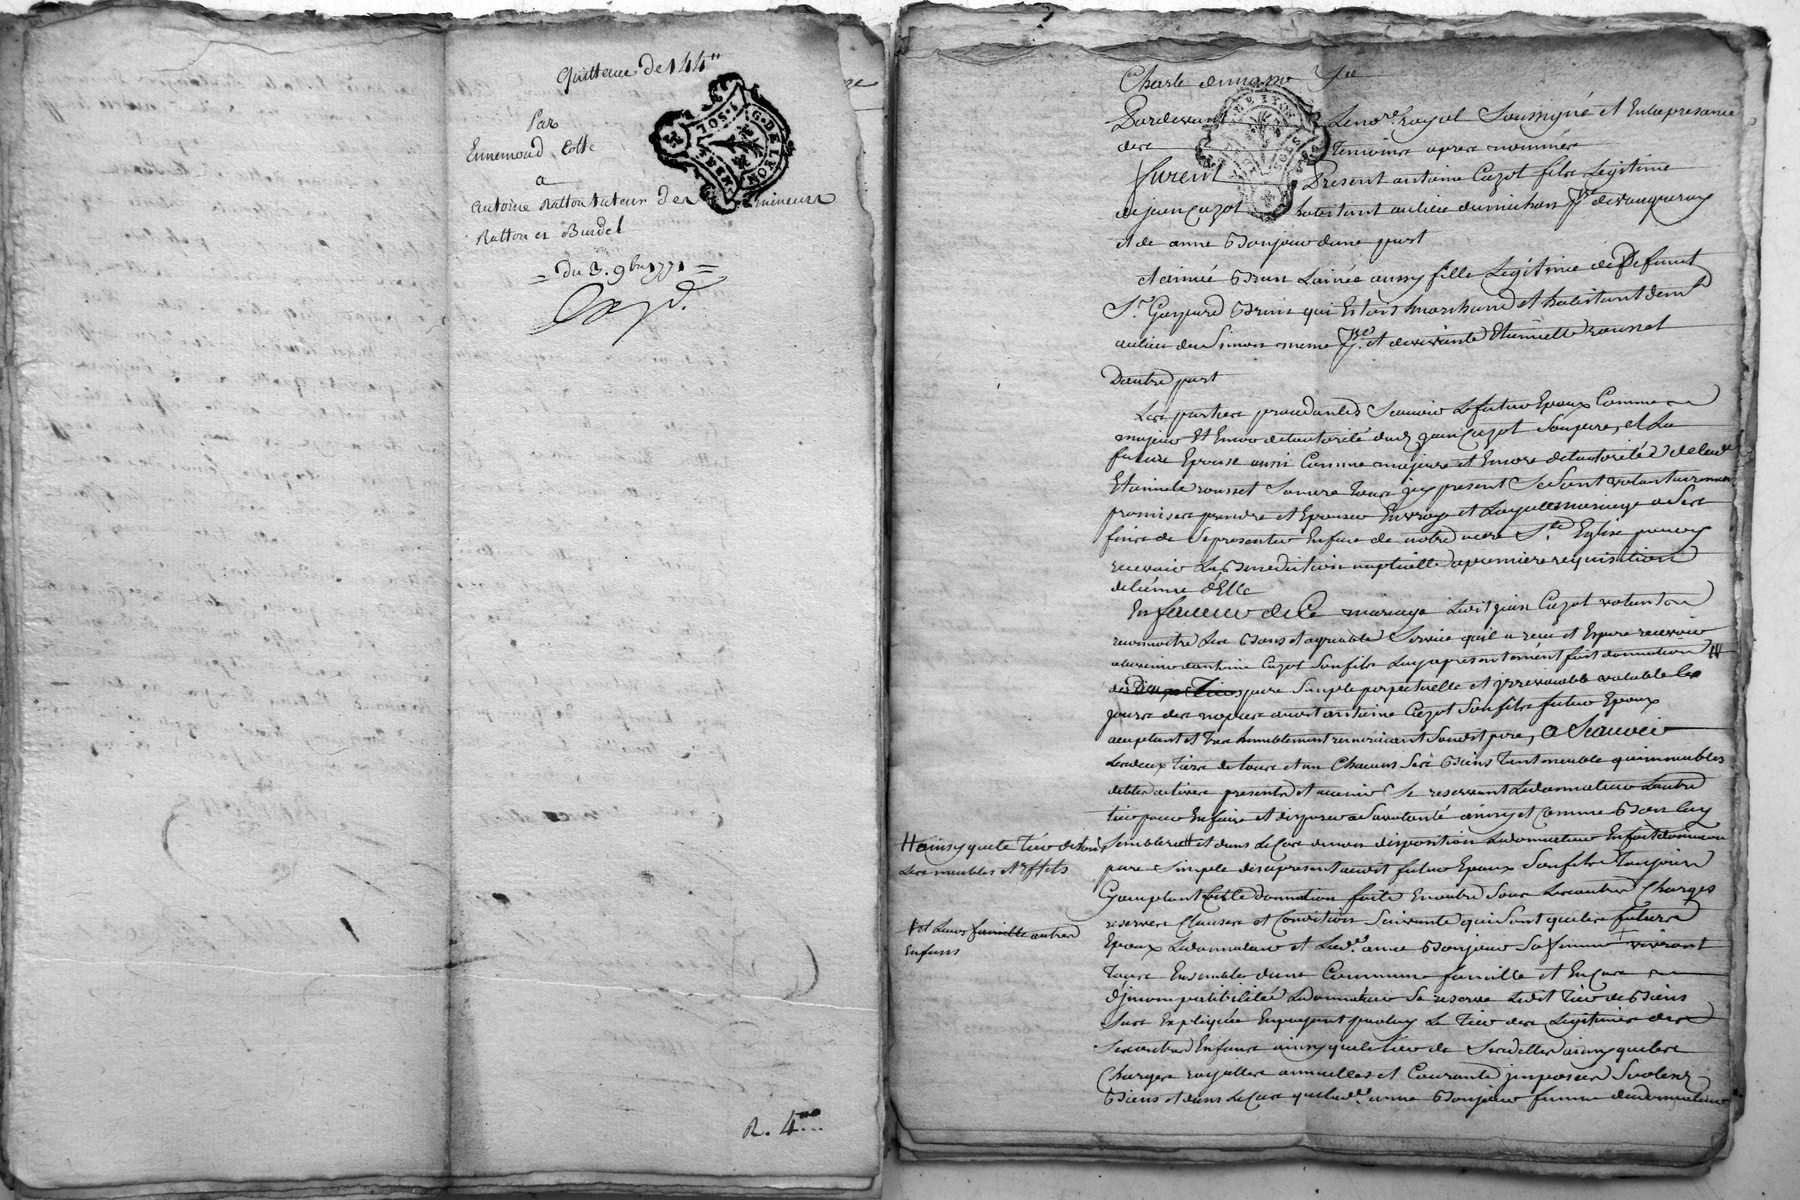 Quittance de 144ᵗᵗ
Par
Ennemond Cotte
a
Antoine Ratton tuteur des mineurs
Ratton et Burdel
= Du 3. 9bre 1771 =
R. 4
G. DE LYON
Charle de mariage
Pardevant Le no.re royal Soussigné et En la presance
des temoins apres nommés
furent Present antoine Cazot fils Legitime
de jean Cazot habitant au lieu du
et de anne Bonjour dune part
et aimée Brun Lainée aussy fille Legitime de Defunt
S.r Gaspard Brun qui Estoit marchand et habitant dem.t
au lieu de Simon meme P.sse et de vivante Etiennette rousset
Dautre part
Les parties procedantes Scavoir Le futur Epoux Comme
majeur Et Encor de lautorité dud. jean Cazot Son pere, et La
future Epouse aussi Comme majeure et Encore de lautorité de lad.e
Etiennete rousset Sa mere tous icy present Se Sont volontairement
promis se prendre et Epouser En vray et Loyal mariage a Ses
fins de Se presenter En face de notre mere S.te Eglise pour y
recevoir La Benediction nuptielle a premiere requisition
de lun ou d'Elle
En faveur de Ce mariage Ledit jean Cazot voulant
reconnoitre Les Bons et agreable Service quil a receu et Espere recevoir
dantoine Cazot Son fils Luy a presentement fait donnation
pure Simple perpetuelle et jrrevocable valable Les
jours des nopces audit antoine Cazot Son fils futur Epoux
acceptant et tres humblement remerciant Sondit pere, a Scavoir
Les deux tiers de tous et un Chacuns Ses Biens tant meuble quimmeubles
dettes actives presents et avenir Se reservant Le donnateur Lautre
tier pour En faire et disposer a Sa volonté ainsy et Comme Bon Luy
Semblera et dans Le Cas de non disposition Le donnateur En fait donnation
pure Simple des a present audit futur Epoux Son fils toujours
acceptant Cette donnation faite En outre Sous Les autres Charges
reserves Clauses et Condition Suivante qui Sont que Les futurs
Epoux Le donnateur et Lad.e anne Bonjour Sa femme vivront
tous Ensemble dune Commune famille et En Cas
djncompatibilité Le donnateur Se reserve Ledit tier de Biens
Sus Expliquée En payant par luy Le tier des Legitimes des
Ses autres Enfans ainsy que le tier de Ses dettes ainsy que les
Charges royalles annuelles et Courante jmposées Sur les
Biens et dans Le Cas que lad.e anne Bonjour femme du donnateur
ainsy que le tier de tous
Les meubles et Effets
et Leurs famille autres
Enfans